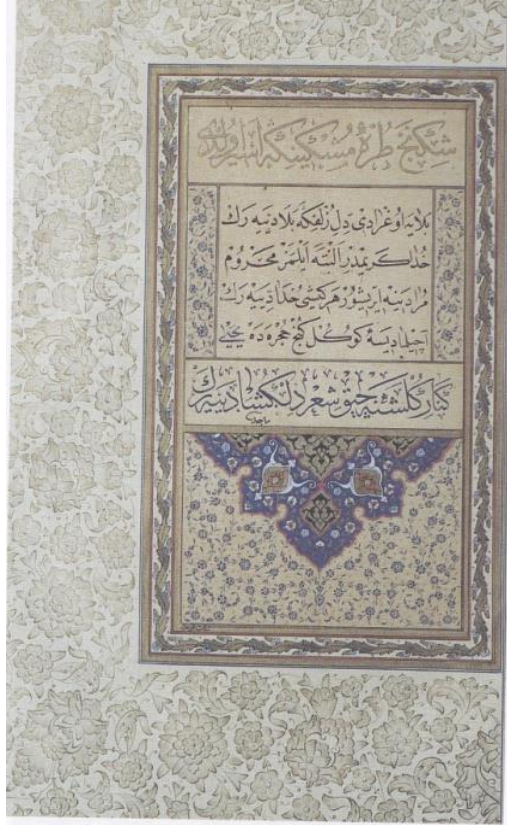 شكنج طرۀ مشكینكه اسیر اولدی
بلایه اوغرادی دل زلفكه بلا دیه رك
خدا كریمدر البته ایلمز محروم
مرادینه ایریشور هر كیشی خدا دیه رك
اچیلمادیسه كوكل كنج حجره ده یحیی
كنار كلشنه چیق شعر دلكشا دیه رك
ماجد